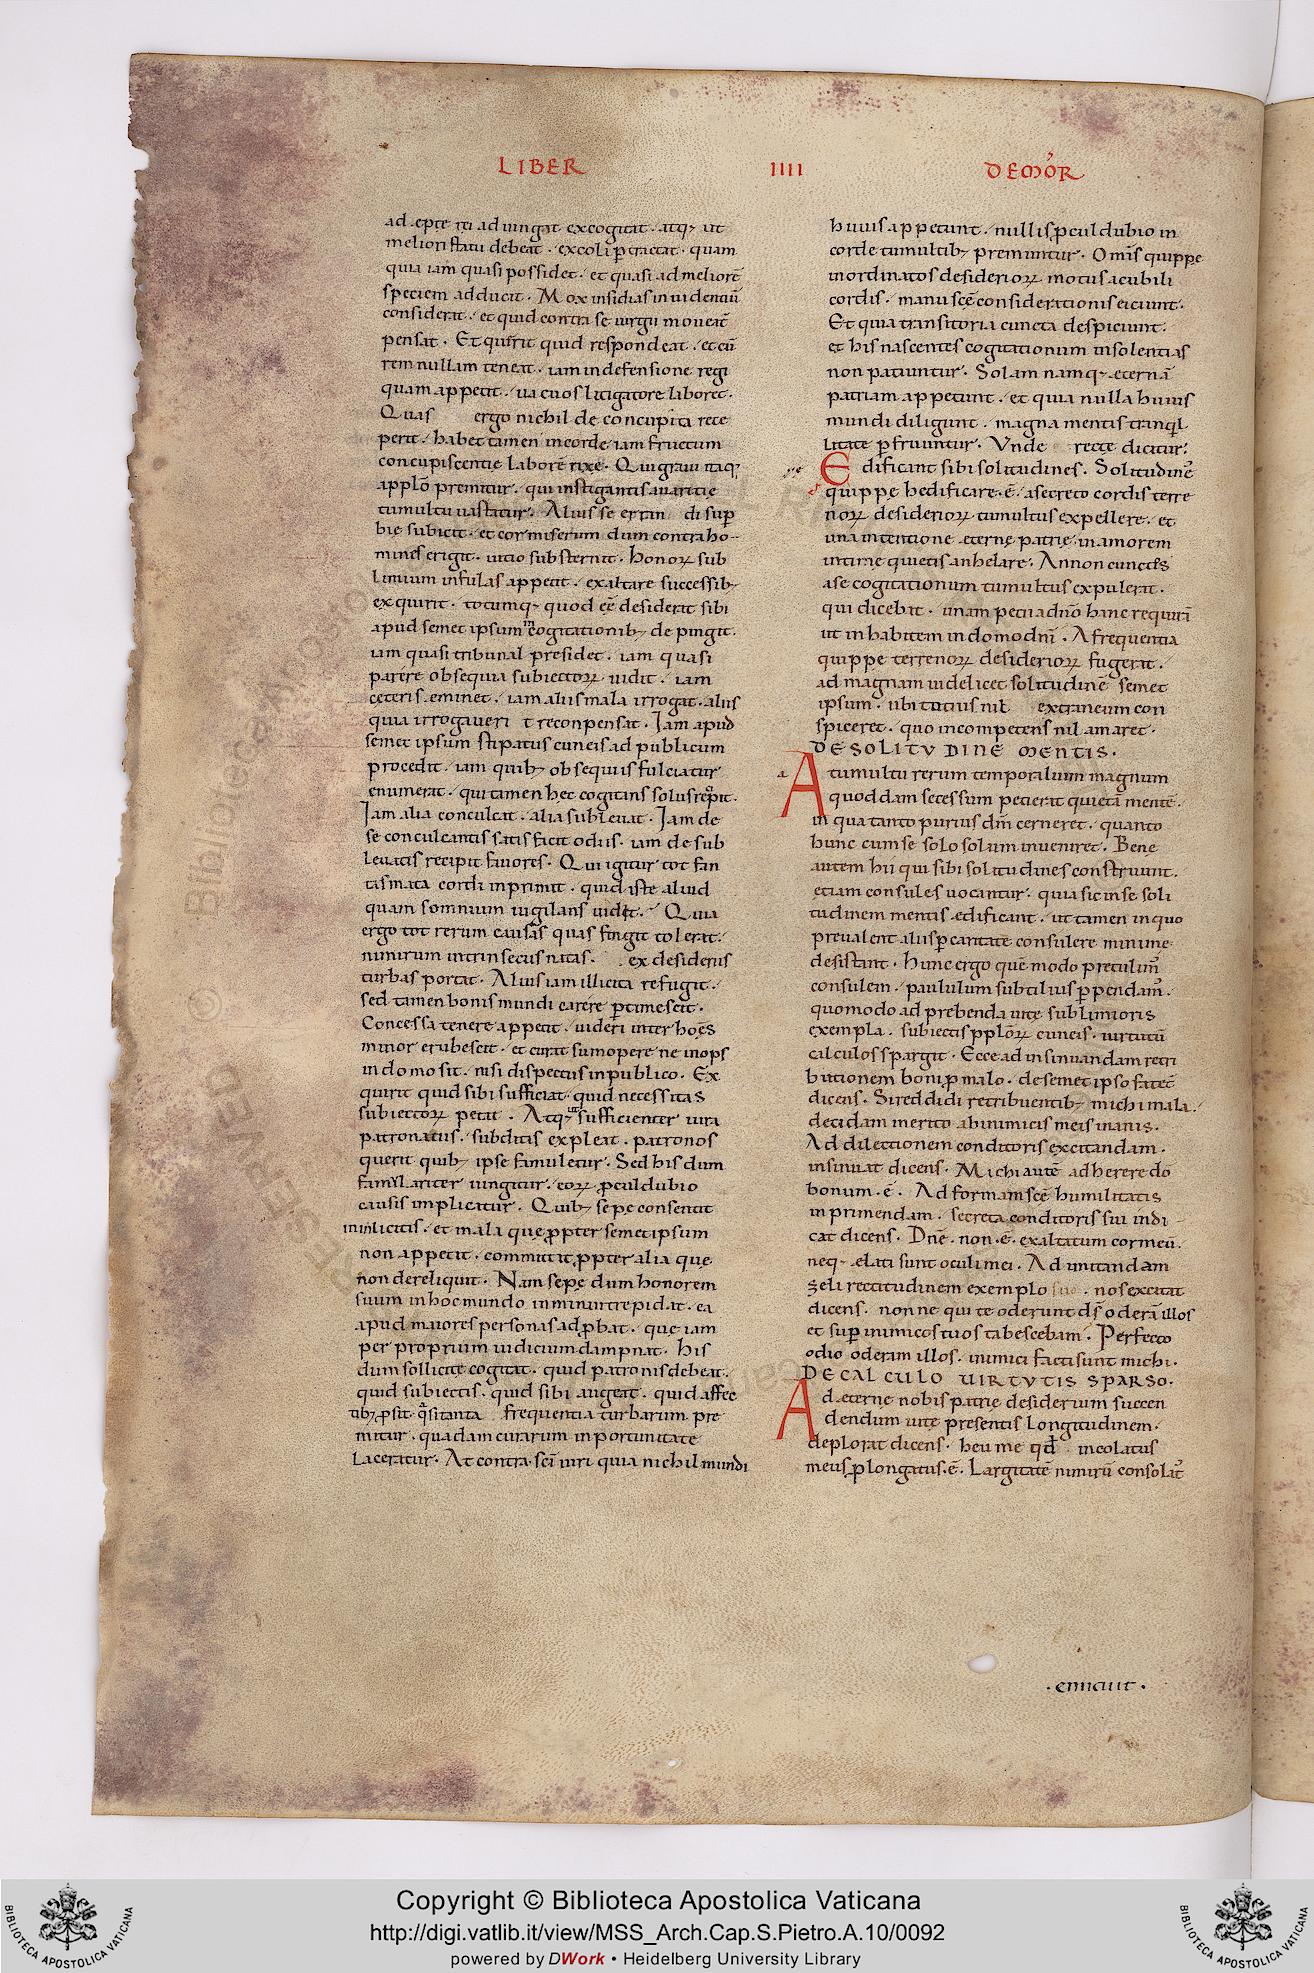 LIBER IIII DEMOR̄
ad eptę rei adiungat excogitat. atq; ut
meliori statu debeat. excoli ꝑtractat. quam
quia iam quasi possidet. et quasi ad meliorē
speciem adducit. Mox insidias inuidentiū
considerat. et quid contra se iurgii moueat̄
pensat. Et querit quid respondeat. et cū
rem nullam teneat. iam in defensione regi
quam appetit. uacuos litigatore laboret.
Quas ergo nichil de concupita rece
perit. habet tamen in corde iam fructum
concupiscentię laborē rixę. Qui graui itaq;
applō premitur. qui instigantis auaritię
tumultu uastatur. Alius se erran di suꝑ
bię subicit. et cor miserum dum contra ho-
mines erigit. uitio substernit. Honorꝝ sub
limium infulas appetit. exaltare successib;
exquirit. totumq; quod eē desiderat sibi
apud semet ipsum cogitationib; depingit.
iam quasi tribunal presidet. iam quasi
parere obsequia subiectorꝝ uidit. iam
cęteris eminet. iam aliis mala irrogat. aliis
quia irrogaueri t reconpensat. Iam apud
semet ipsum stipatus cuneis ad publicum
procedit. iam quib; obsequiis fulciatur
enumerat. qui tamen hęc cogitans solus reꝑit.
Iam alia conculcat. alia subleuat. Iam de
se conculcantis satisfacit odiis. iam de sub
leuatis recipit fauores. Qui igitur tot fan
tasmata cordi inprimit. quid iste aliud
quam somnium uigilans uidet. Quia
ergo tot rerum causas quas fingit tolerat.
nimirum intrinsecus natas. ex desideriis
turbas portat. Alius iam illicita refugit.
sed tamen bonis mundi carere ꝑtimescit.
Concessa tenere appetit. uideri inter hoēs
minor erubescit. et curat sumopere ne inops
in domo sit. nisi dispectus in publico. Ex
quirit quid sibi sufficiat quid necessitas
subiectorꝝ petat. Atq; sufficienter iura
patronatus. subditis expleat. patronos
querit quib; ipse famuletur. Sed his dum
familariter iungitur. eorꝝ ꝓculdubio
causis implicatur. Quib; sepe consentit
in inlicitis. et mala quę ꝓpter semet ipsum
non appetit. committit ꝓpter alia quę
non dereliquit. Nam sepe dum honorem
suum in hoc mundo inminui trepidat. ea
apud maiores personas adꝓbat. quę iam
per proprium iudicium dampnat. His
dum sollicite cogitat. quid patronis debeat.
quid subiectis. quid sibi augeat. quid affec
tib; ꝓsit. q̄sitanta frequentia turbarum pre
mitur. quadam curarum inportunitate
laceratur. At contra sc̄i uiri quia nichil mundi
huius appetunt. nullis ꝓculdubio in
corde tumultib; premuntur. Omīs quippe
inordinatos desideriorꝝ motus a cubili
cordis. manu sc̄e considerationis eiciunt.
Et quia transitoria cuncta despiciunt.
et his nascentes cogitationum insolentias
non patiuntur. Solam namq; eternā
patriam appetunt. et quia nulla huius
mundi diligunt. magna mentis tranqͥl
litate ꝑfruuntur. Vnde recte dicitur.
Edificant sibi solitudines. Solitudinē
quippe hedificare. ē. a secreto cordis terre
norꝝ desideriorꝝ tumultus expellere. et
una intentione eternę patrię. in amorem
intimę quietis anhelare. An non cunctos
a se cogitationum tumultus expulerat.
qui dicebat. unam petii a dn̄o hanc requirā
ut inhabitem in domo dn̄i. A frequentia
quippe terrenorꝝ desideriorꝝ fugerat.
ad magnam uidelicet solitudinē semet
ipsum. ubi totius nil extraneum con
spiceret. quo incompetens nil amaret.
DE SOLITVDINE MENTIS.
A tumultu rerum temporalium magnum
quoddam secessum petierat quietā mentē.
in qua tanto purius dm̄ cerneret. quanto
hunc cum se solo solum inueniret. Bene
autem hii qui sibi solitudines construunt.
etiam consules uocantur. quia sic in se soli
tudinem mentis edificant. ut tamen in quo
preualent aliis ꝑ caritatē consulere minime
desistant. Hunc ergo quē modo pretulim᷒
consulem. paululum subtilius ꝑpendam᷒.
quomodo ad prebenda uitę sublimioris
exempla. subiectis pplōrꝝ cuneis. uirtutū
calculos spargit. Ecce ad insinuandam retri
butionem boni ꝓ malo. de semet ipso fatet᷒
dicens. Si reddidi retribuentib; michi mala.
decidam merito ab inimicis meis inanis.
Ad dilectionem conditoris excitandam.
insinuat dicens. Michi autē adherere dō
bonum. ē. Ad formam sc̄e humilitatis
inprimendam. secreta conditoris sui indi
cat dicens. Dn̄e. non. ē. exaltatum cor meū.
neq; elati sunt oculi mei. Ad imitandam
zeli rectitudinem exemplo suo. nos excitat
dicens. nonne qui te oderunt ds̄ oderā illos
et suꝑ inimicos tuos tabescebam. Perfecto
odio oderam illos. inimici facti sunt michi.
DE CALCULO UIRTVTIS SPARSO.
Ad eterne nobis patrię desiderium succen
dendum uitę presentis longitudinem.
deplorat dicens. heu me qđ incolatus
meus ꝓlongatus. ē. Largitatē nimirū consolat᷒
Copyright © Biblioteca Apostolica Vaticana
http://digi.vatlib.it/view/MSS_Arch.Cap.S.Pietro.A.10/0092
powered by DWork • Heidelberg University Library
BIBLIOTECA APOSTOLICA VATICANA
BIBLIOTECA APOSTOLICA VATICANA